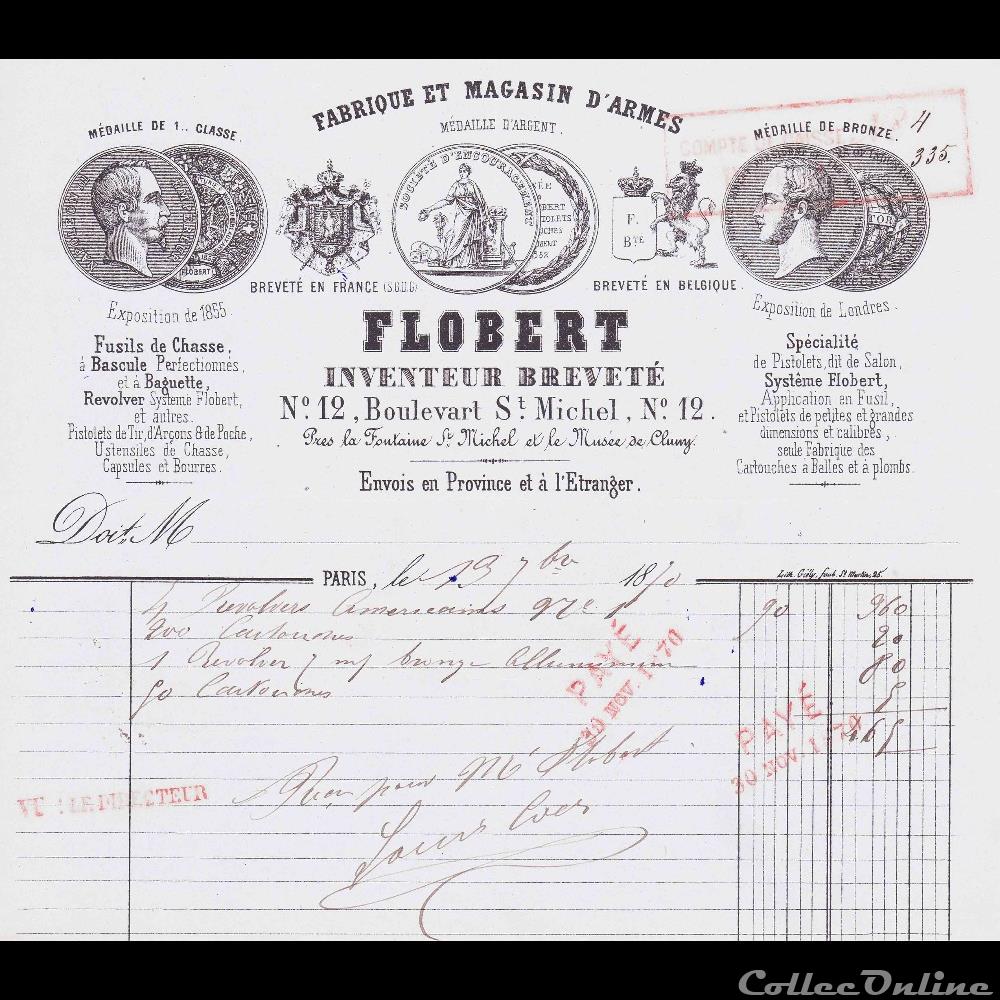 FABRIQUE ET MAGASIN D'ARMES
MÉDAILLE DE 1.. CLASSE.
MÉDAILLE D'ARGENT.
MÉDAILLE DE BRONZE.
4
335.
SOCIÉTÉ D'ENCOURAGEMENT
F.
BTE
FLOBERT
BREVETÉ EN FRANCE (S.G.D.G.)
BREVETÉ EN BELGIQUE.
Exposition de 1855.
Exposition de Londres.
FLOBERT
INVENTEUR BREVETÉ
No. 12, Boulevart St. Michel, No. 12.
Près la Fontaine St Michel et le Musée de Cluny.
Envois en Province et à l'Etranger.
Fusils de Chasse,
à Bascule Perfectionnés,
et à Baguette,
Revolver Système Flobert,
et autres.
Pistolets de Tir, d'Arçons & de Poche,
Ustensiles de Chasse,
Capsules et Bourres.
Spécialité
de Pistolets, dit de Salon,
Système Flobert,
Application en Fusil,
et Pistolets de petites et grandes
dimensions et calibres,
seule Fabrique des
Cartouches à Balles et à plombs.
Doit M
PARIS, le 13 7bre 1870
Lith. Gély, faub. St Martin, 25.
4 Revolvers Americains 90 360
200 Cartouches 20
1 Revolver 7 m/ bronze Alluminium 80
50 Cartouches 5
465
PAYÉ
30 NOV. 1870
PAYÉ
30 NOV. 1870
VU : LE DIRECTEUR
pour Mr Flobert
Louis
CollecOnline